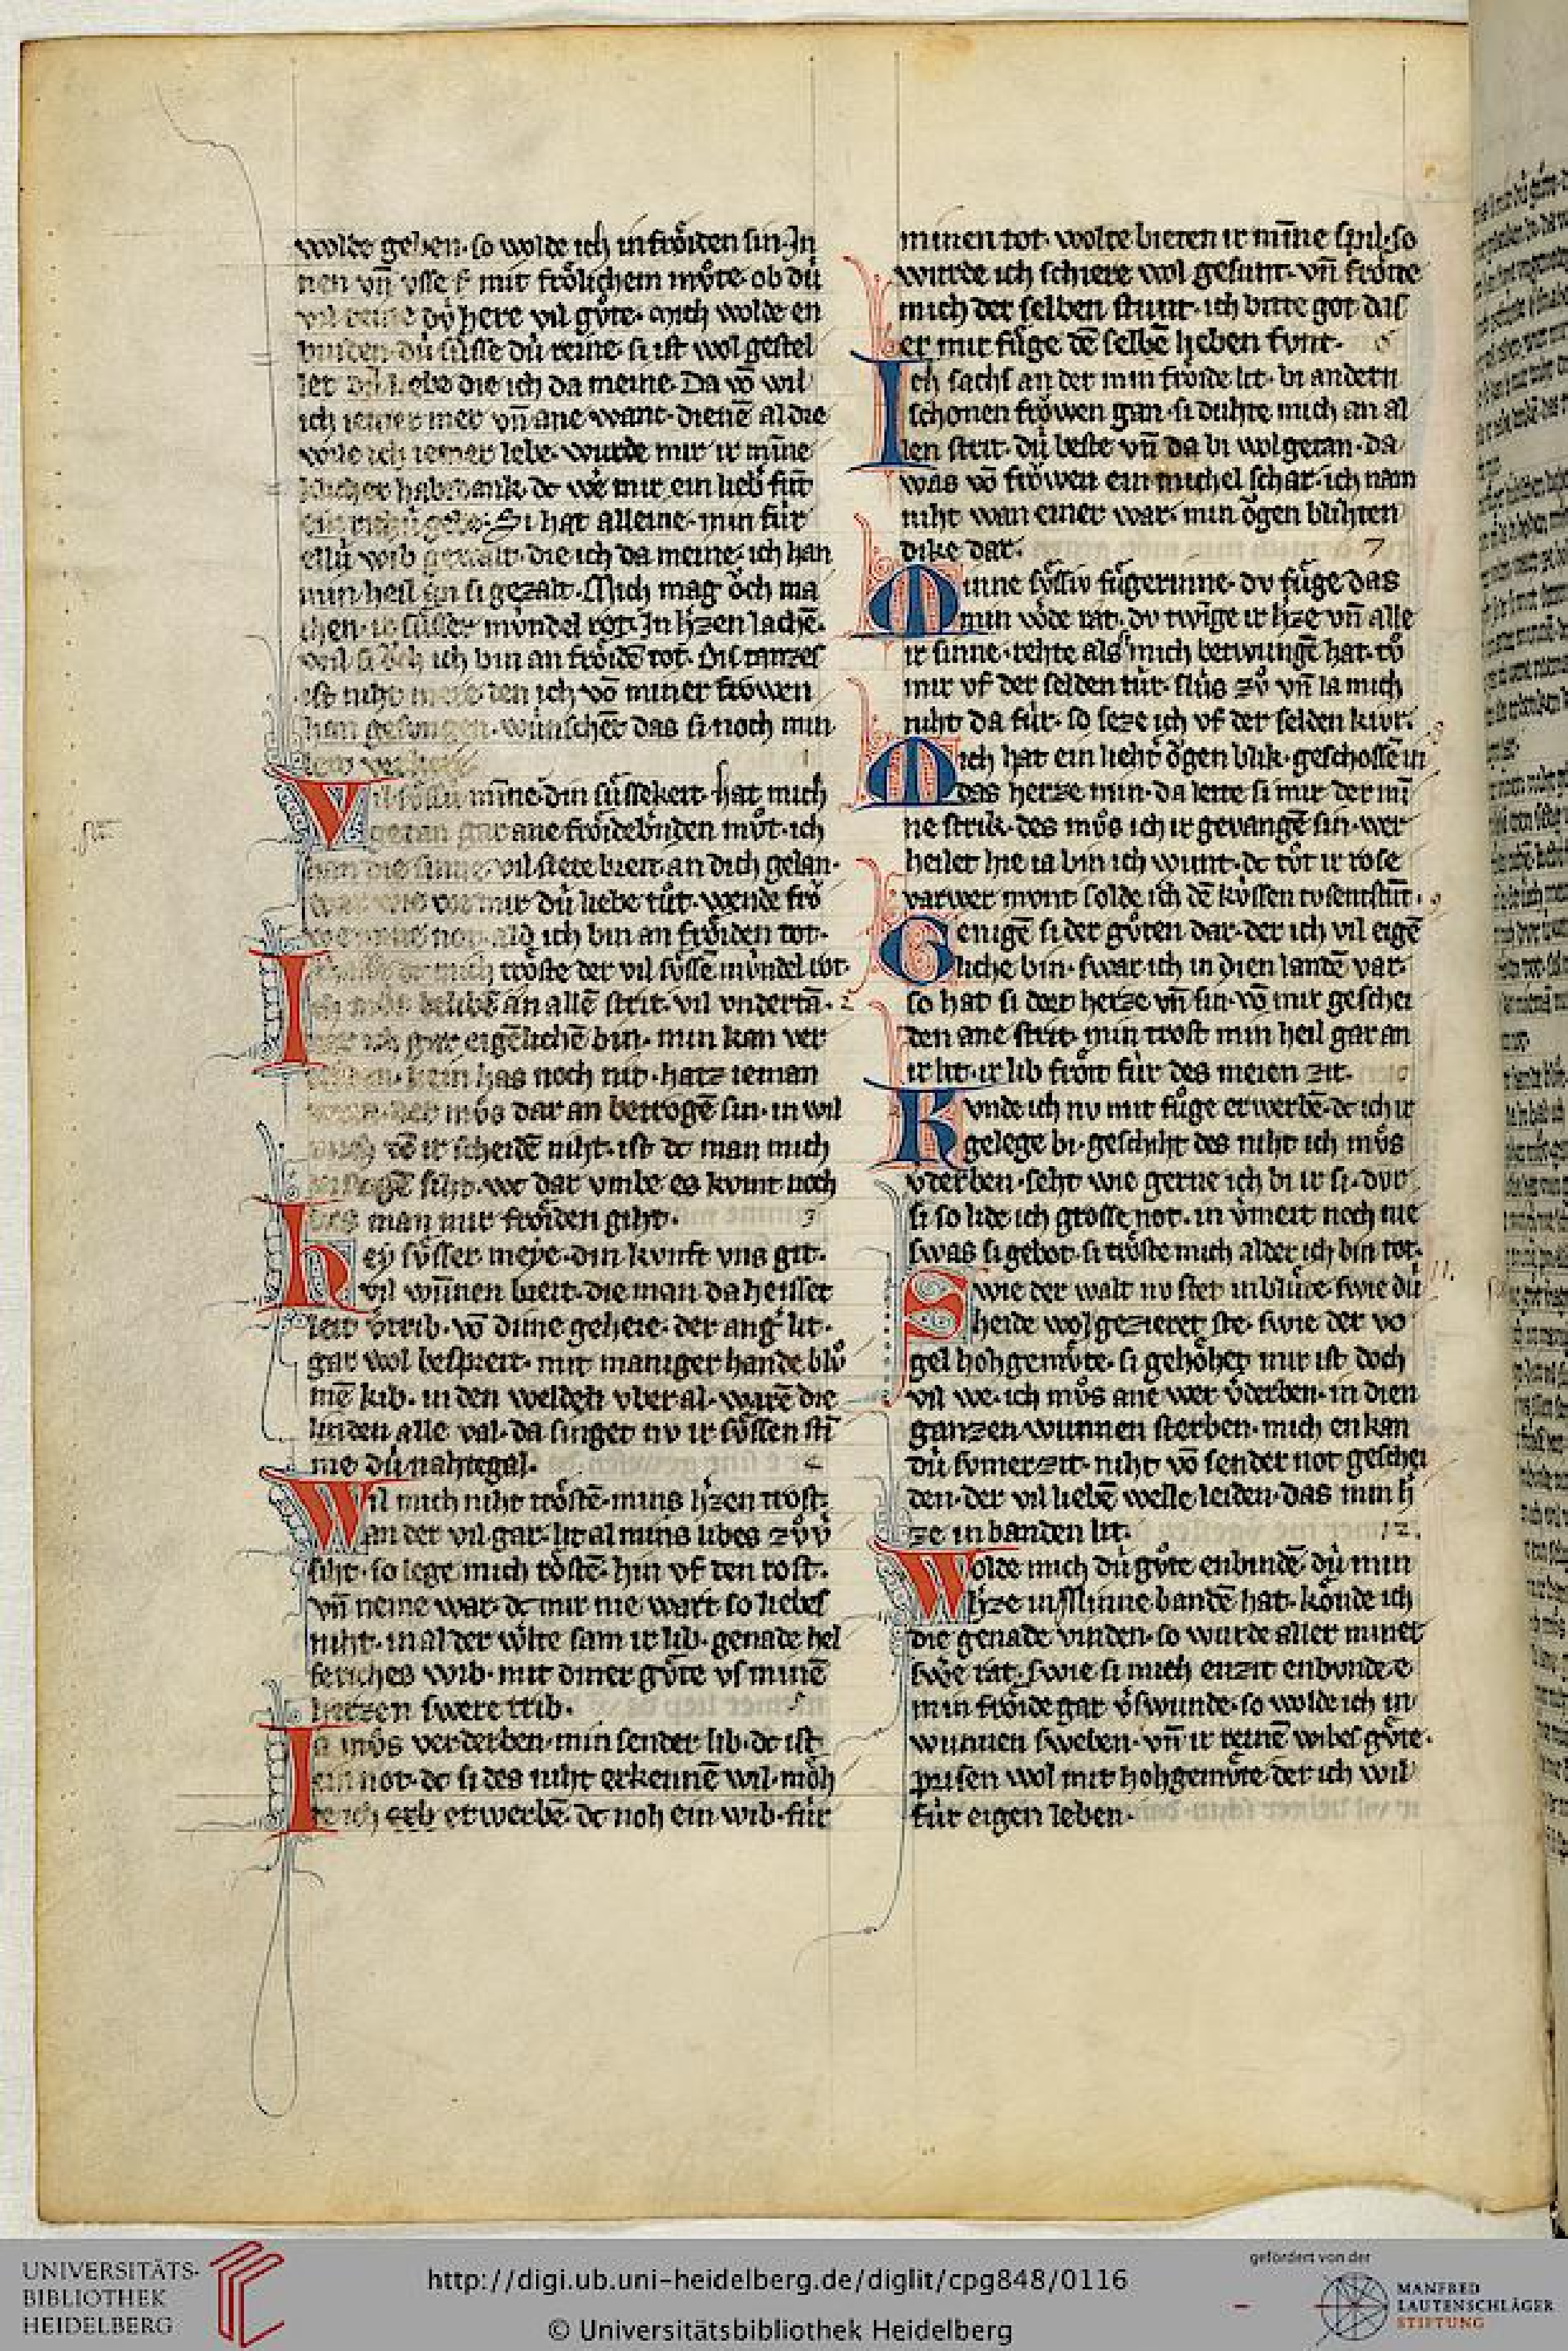 wolde geben· so wolde ich in froͤiden sin· In
nen vn̄ vsse mit froͤlichem mvͦte· ob dú
vil here vil guͤte· mich wolde en
binden· dú suͤsse dú reine· si ist wol gestel
let dú liebe die ich da meine· Da vō wil
ich iemer mer vn̄ ane wank· dienē al die
wile ich iemer lebe· wurde mir ir mīne
habedank· dc wē mir ein lieb
Si hat alleine· min fúr
ellú wib gewalt· die ich da meine· ich han
min heil an si gezalt· Mich mag oͮch ma
chen· ir suͤsser múndel rot· In hˀzen lachē·
wil si ich bin an froͤidē tot· Dis tanzes
ist niht mere den ich vō miner froͮwen
han gesungen· wúnschēt das si noch min

Vil suͤssú mīne din suͤssekeit· hat mich
getan gar ane froͤide bˀnden mvͦt· ich
han die sinne· vil stete breit an dich gelan·
mir dú liebe tuͦt· wende froͮ
we not· ald ich bin an froͤiden tot·
mich troͤste der vil suͤssē múndel rot·
Ich mvͦs belibē an allē strit· vil vndertā· 2
ich gar eigēlichē bin· min kan ver
kein has noch nit· hatz ieman
der mvͦs dar an betrogē sin· in wil
mich vō ir scheidē niht· ist dc man mich
siht· wc dar vmbe es kvmt noch
das man mir froͤiden giht· 3
hey suͤsser meye· din kvnft vns git·
vil wn̄nen breit· die man da heisset
leit vˀtrib· vō dime geheie· der angˀ lit·
gar wol bespreit· mit maniger hande bluͦ
mē kib· in den welden vber al· warē die
linden alle val· da singet nv ir suͤssen sti
me dú nahtegal· 4
Wil mich niht troͤstē· mins hˀzen trost·
an der vil gar· lit al mins libes zvͦ vˀ
siht· so lege mich roͤstē· hin vf den rost·
vn̄ neme war· dc mir nie wart so liebes
niht· in al der wˀlte sam ir lib· genade hel
feriches wib· mit diner guͤte vs minē
hertzen swere trib· 5
Ia mvͦs verderben· min sender lib· dc ist
ein not· dc si des niht erkennē wil· moͤh
te ich erwerbē· dc noh ein wib· fúr
minen tot· wolte bieten ir mīne spil· so
wurde ich schiere wol gesunt· vn̄ froͤite
mich der selben stunt· ich bitte got das
er mir fuͤge dē selbē lieben fvnt· 6
Ich sachs an der min froͤide lit· bi andern
schonen froͮwen gan· si duhte mich an al
len strit· dú beste vn̄ da bi wolgetan· da
was vō froͮwen ein michel schar· ich nam
niht wan einer war· min oͮgen blihten
dike dar· 7
Minne suͤssiv fuͤgerinne· dv fuͤge das
min vˀde rat· dv twīge ir hˀze vn̄ alle
ir sinne· rehte als mich betwungē hat· tvͦ
mir vf der selden túr· slús zvͦ vn̄ la mich
niht da fúr· so seze ich vf der selden kúr· 8
Mich hat ein lieht oͮgen blik· geschossē in
das herze min· da leite si mir der mī
ne strik· des mvͦs ich ir gevangē sin· wer
heilet hie ia bin ich wunt· dc tvͦt ir rose
varwer mvnt solde ich dē kússen tusentstūt· 9
Genigē si der guͤten dar· der ich vil eigē
liche bin· swar ich in dien landē var·
so hat si doch herze vn̄ sin· vō mir geschei
den ane strit· min trost min heil gar an
ir lit· ir lib froͤit fúr des meien zit· 10
Kvnde ich nv mit fuͤge erwerbē· dc ich ir
gelege bi· geschiht des niht ich mvͦs
vˀderben· seht wie gerne ich bi ir si· dvr
si so lide ich grosse not· in vˀmeit noch nie
swas si gebot· si troͤste mich alder ich bin tot·
Swie der walt nv stet in blúte· swie dú 11.
heide wol gezieret ste· swie der vo
gel hohgemvͤte· si gehoͤhet mir ist doch
vil we· ich mvͦs ane wer vˀderben· in dien
ganzen wunnen sterben· mich en kan
dú svmer zit· niht vō sender not geschei
den· der vil liebē welle leiden· das min hˀ
ze in banden lit· 12.
Wolde mich dú guͤte enbindē· dú min
hˀze in Minne bandē hat· koͤnde ich
die genade vinden· so wurde aller miner
swˀe rat· swie si mich enzit enbunde·
min froͤide gar vˀswunde· so wolde ich in
wunnen sweben· vn̄ ir reinē wibes guͤte·
prisen wol mit hohgemvͤte· der ich wil
fúr eigen leben·
UNIVERSITÄTS-
BIBLIOTHEK
HEIDELBERG
http://digi.ub.uni-heidelberg.de/diglit/cpg848/0116
© Universitätsbibliothek Heidelberg
gefördert von der
MANFRED
LAUTENSCHLÄGER
STIFTUNG